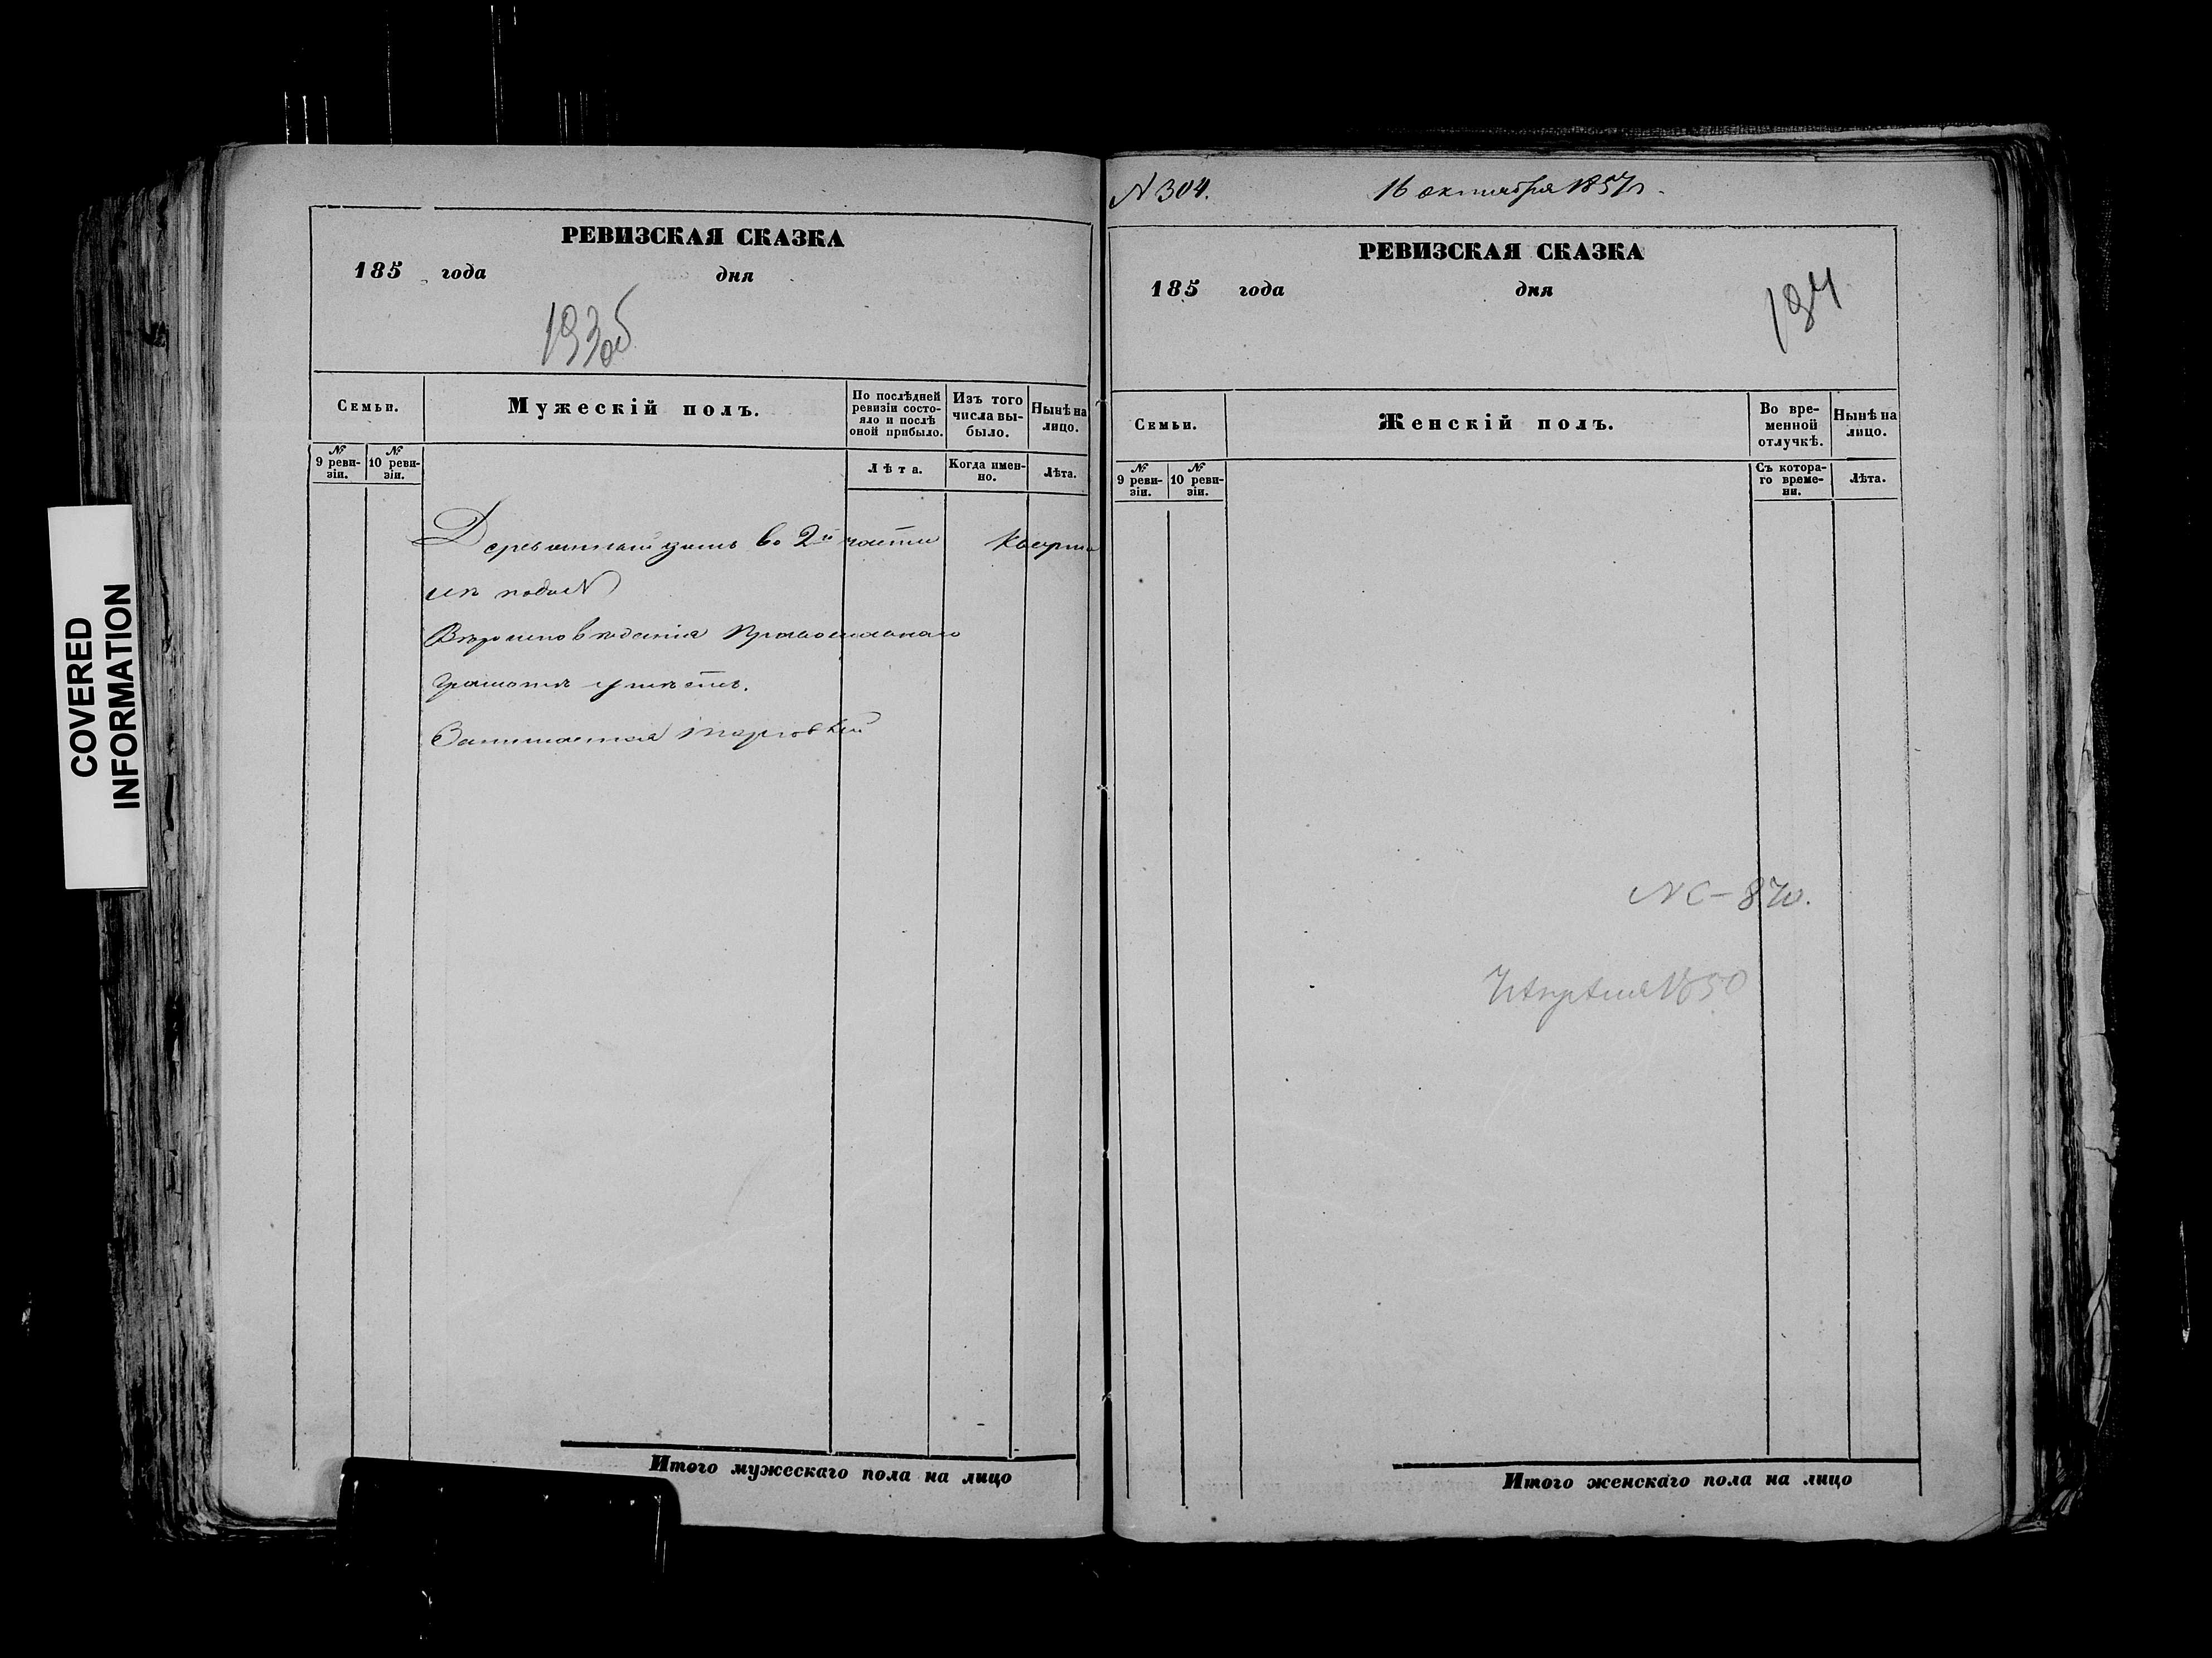 COVERED
INFORMATION
РЕВИЗСКАЯ СКАЗКА
185 года дня
193об
Семьи.
Мужескій полъ.
По послѣдней ревизіи состояло и послѣ оной прибыло.
Изъ того числа выбыло.
Нынѣ на лицо.
№ 9 ревизіи.
№ 10 ревизіи.
Лѣта.
Когда именно.
Лѣта.
Деревянный домъ во 2й части Кварта
лѣ подъ №
Вѣроисповѣданія Православнаго
Грамотѣ умѣетъ.
Занимается торговлей
Итого мужескаго пола на лицо
№ 304. 16 октября 1857г.
РЕВИЗСКАЯ СКАЗКА
185 года дня
194
Семьи.
Женскій полъ.
Во временной отлучкѣ.
Нынѣ на лицо.
№ 9 ревизіи.
№ 10 ревизіи.
Съ котораго времени.
Лѣта.
1850
Итого женскаго пола на лицо